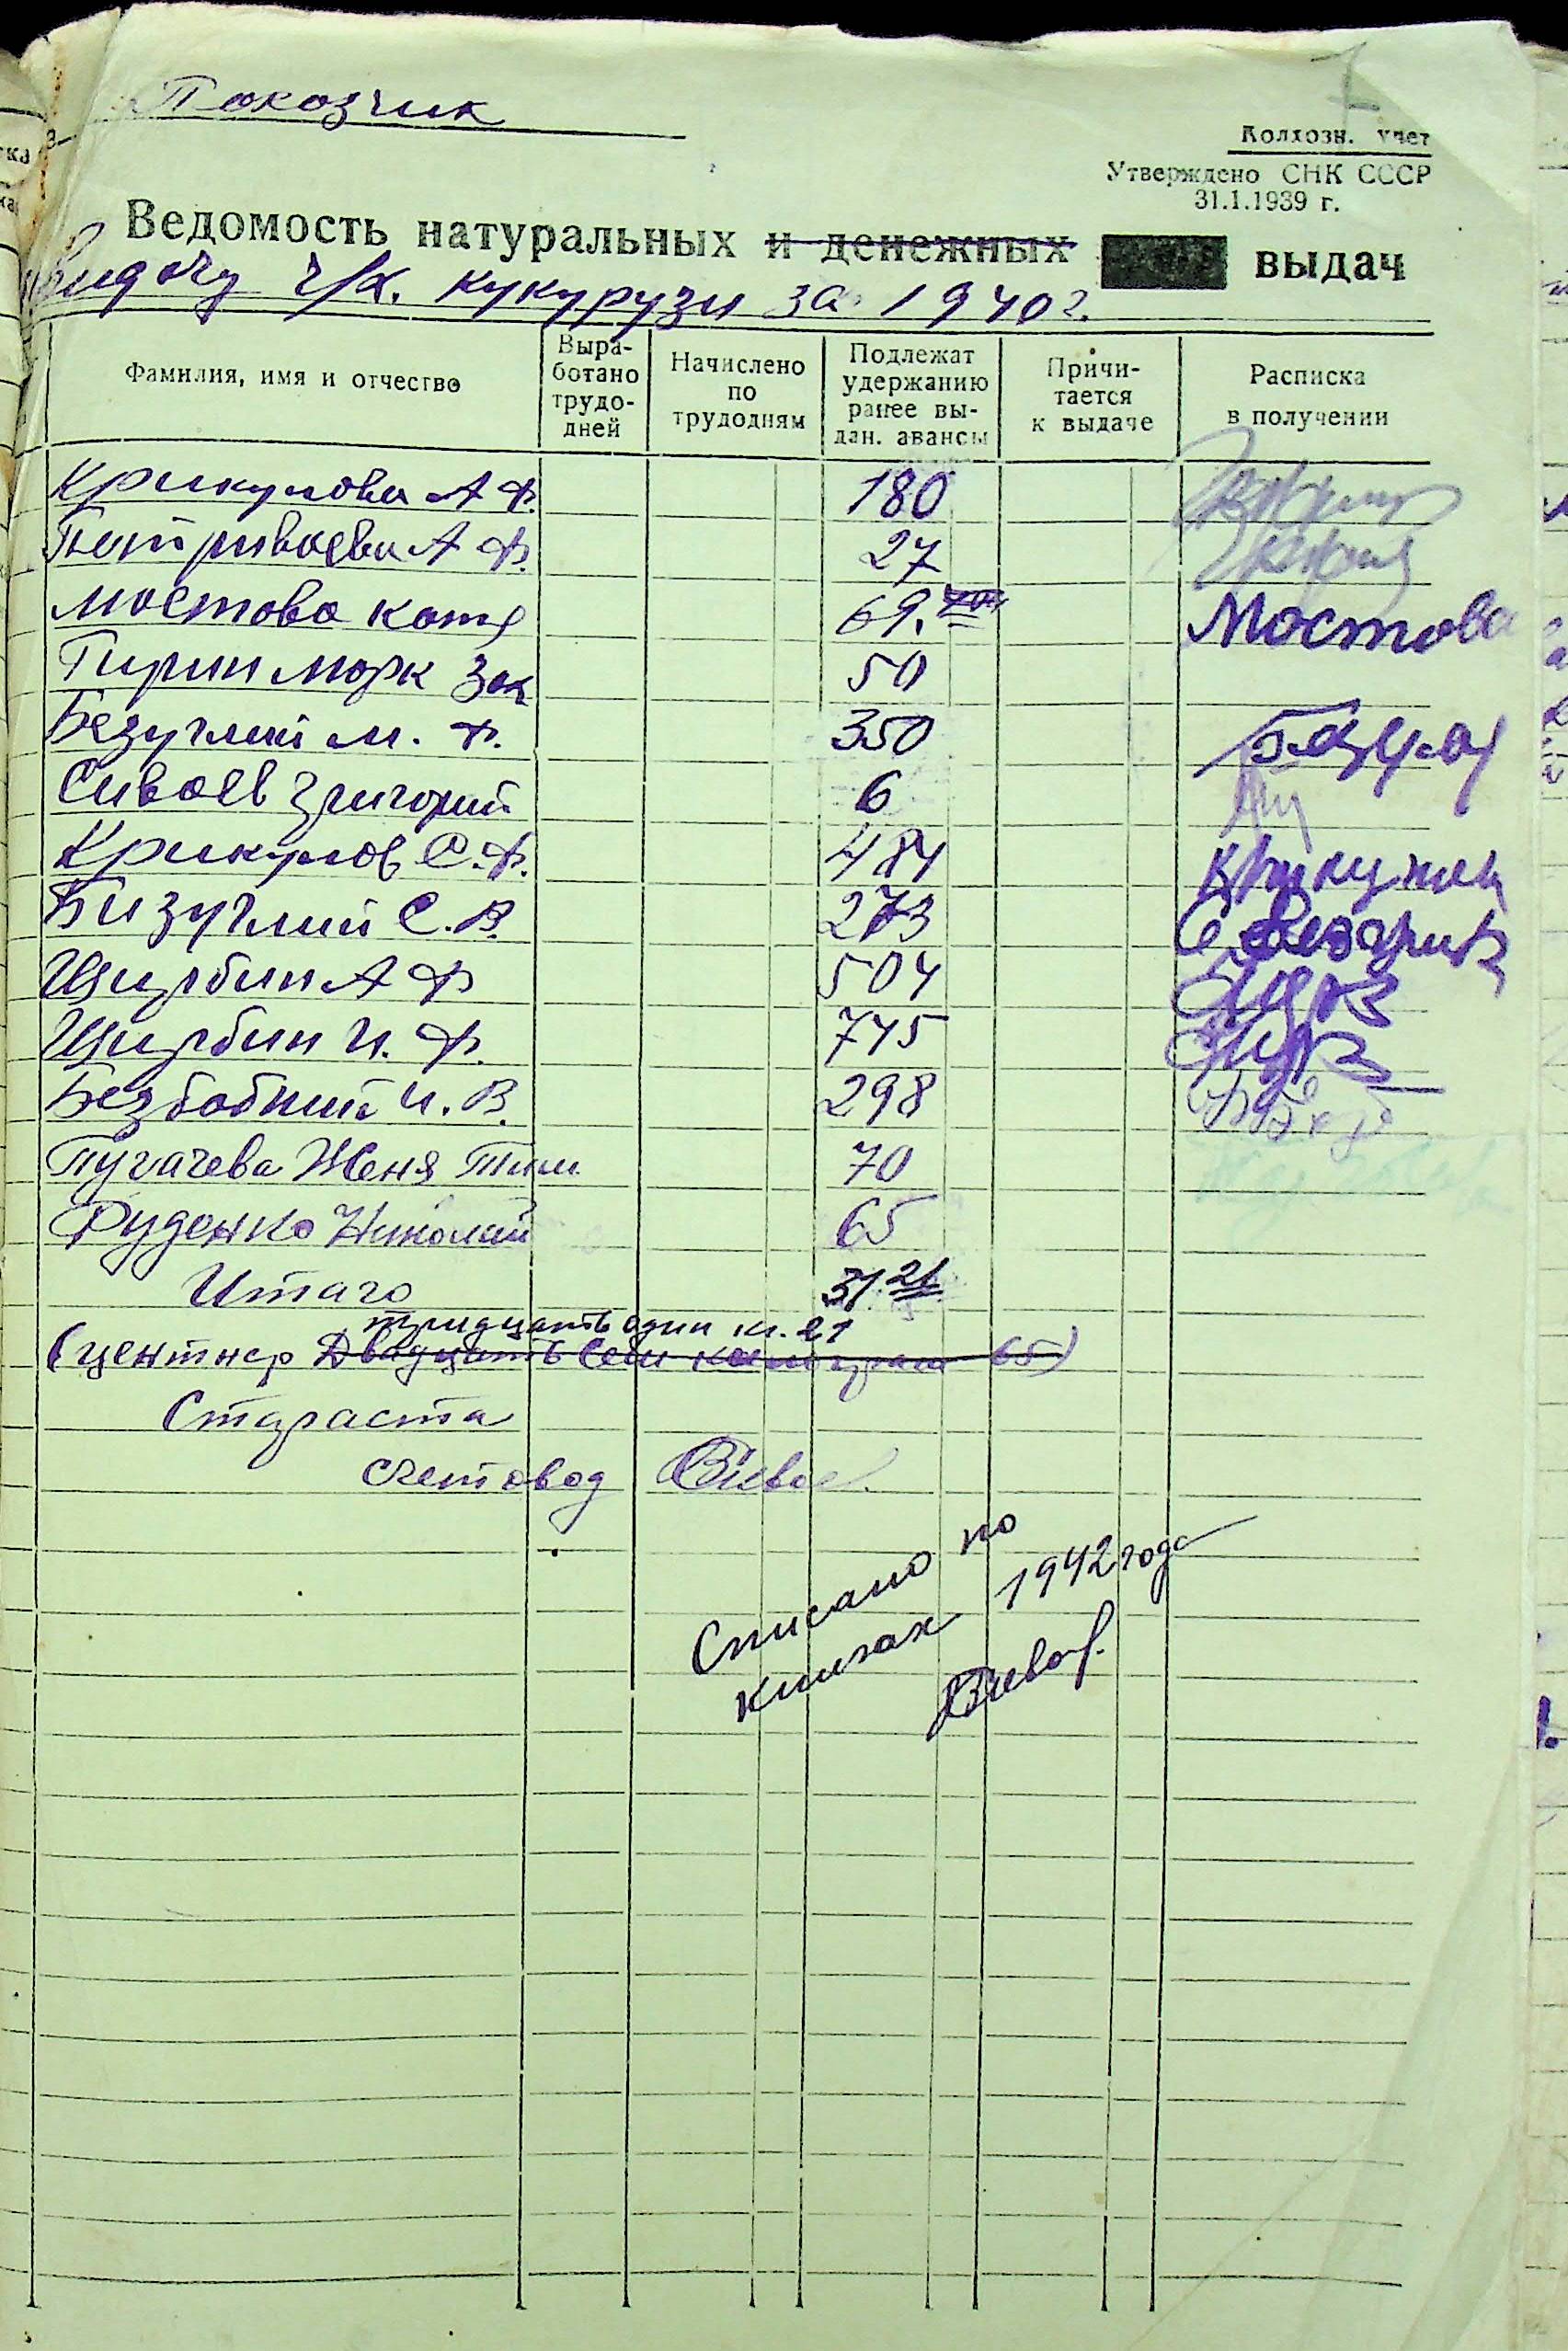 Покозчик
7
Колхозн. учет
Утверждено СНК СССР
31.1.1939 г.
Ведомость натуральных и денежных выдач
видочу к/х. кукурузи за 1940 г.
Фамилия, имя и отчество
Выработано трудодней
Начислено по трудодням
Подлежат удержанию ранее выдан. авансы
Причитается к выдаче
Расписка в получении
Крикунова А Ф. 180
А Ф. 27
Мостова Катя 69. Мостова
Гирин Морк Зах 50
Безуглий М. Ф. 350
Сиваев Григорий 6
Крикунов С. Ф. 484
Бизуглий С. В. 273
Щирбин А Ф 504
Щирбин И. Ф. 745
Безбабний И. В. 298
Пугачева Женя Тим 70
Руденко Николай 65
Итаго 31.21
тридцать один кг. 21
(центнер Двадцать семь килограм 65)
Стараста
Счетовод
Списано по
книгах 1942 года